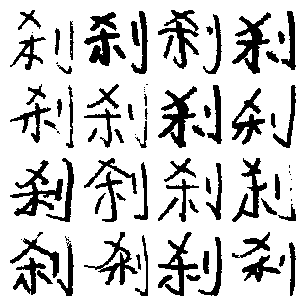 刹刹刹刹
刹刹刹刹
刹刹刹刹
刹刹刹刹